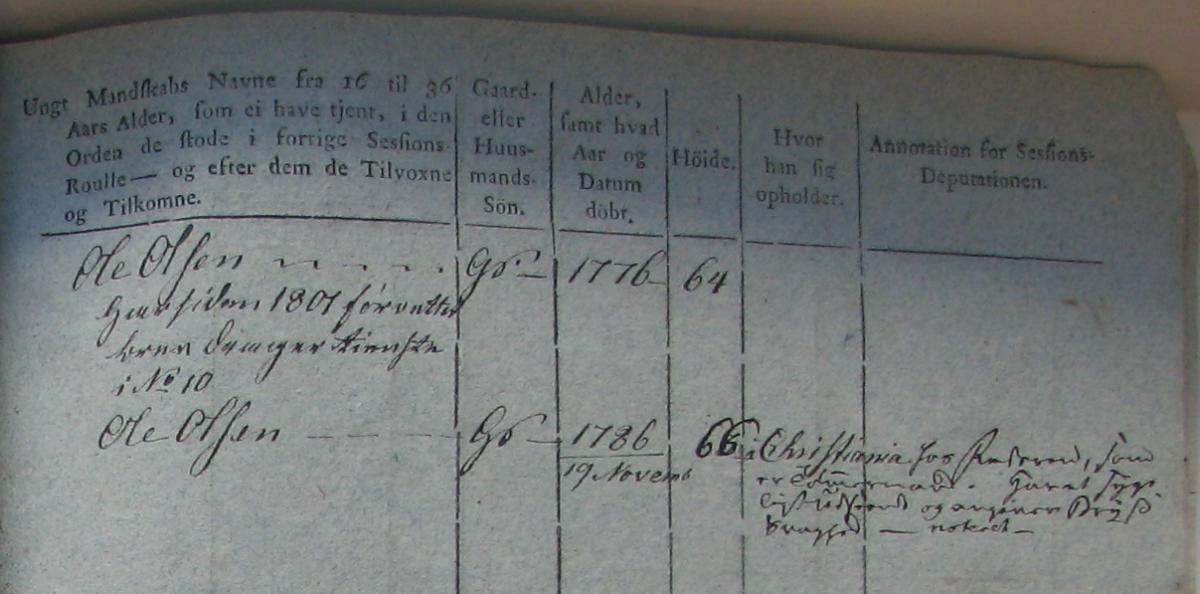 Ungt Mandſkabs Navne fra 16 til 36
Aars Alder, ſom ei have tjent, i den
Orden de ſtode i forrige Seſſions-
Roulle — og efter dem de Tilvoxne
og Tilkomne.
Gaard-
eller
Huus-
mands-
Sön.
Alder,
ſamt hvad
Aar og
Datum
döbt.
Höide.
Hvor
han ſig
opholder.
Annotation for Seſſions-
Deputationen.
Ole Olſen
Gs
1776
64
har ſiden 1801 forrettet
brev drager tieneste
i No 10
Ole Olſen
Gs
1786
19 Novemb
66
i Christiania hos, ſom
er. Har et
og angiver Bryſt
— noteret —